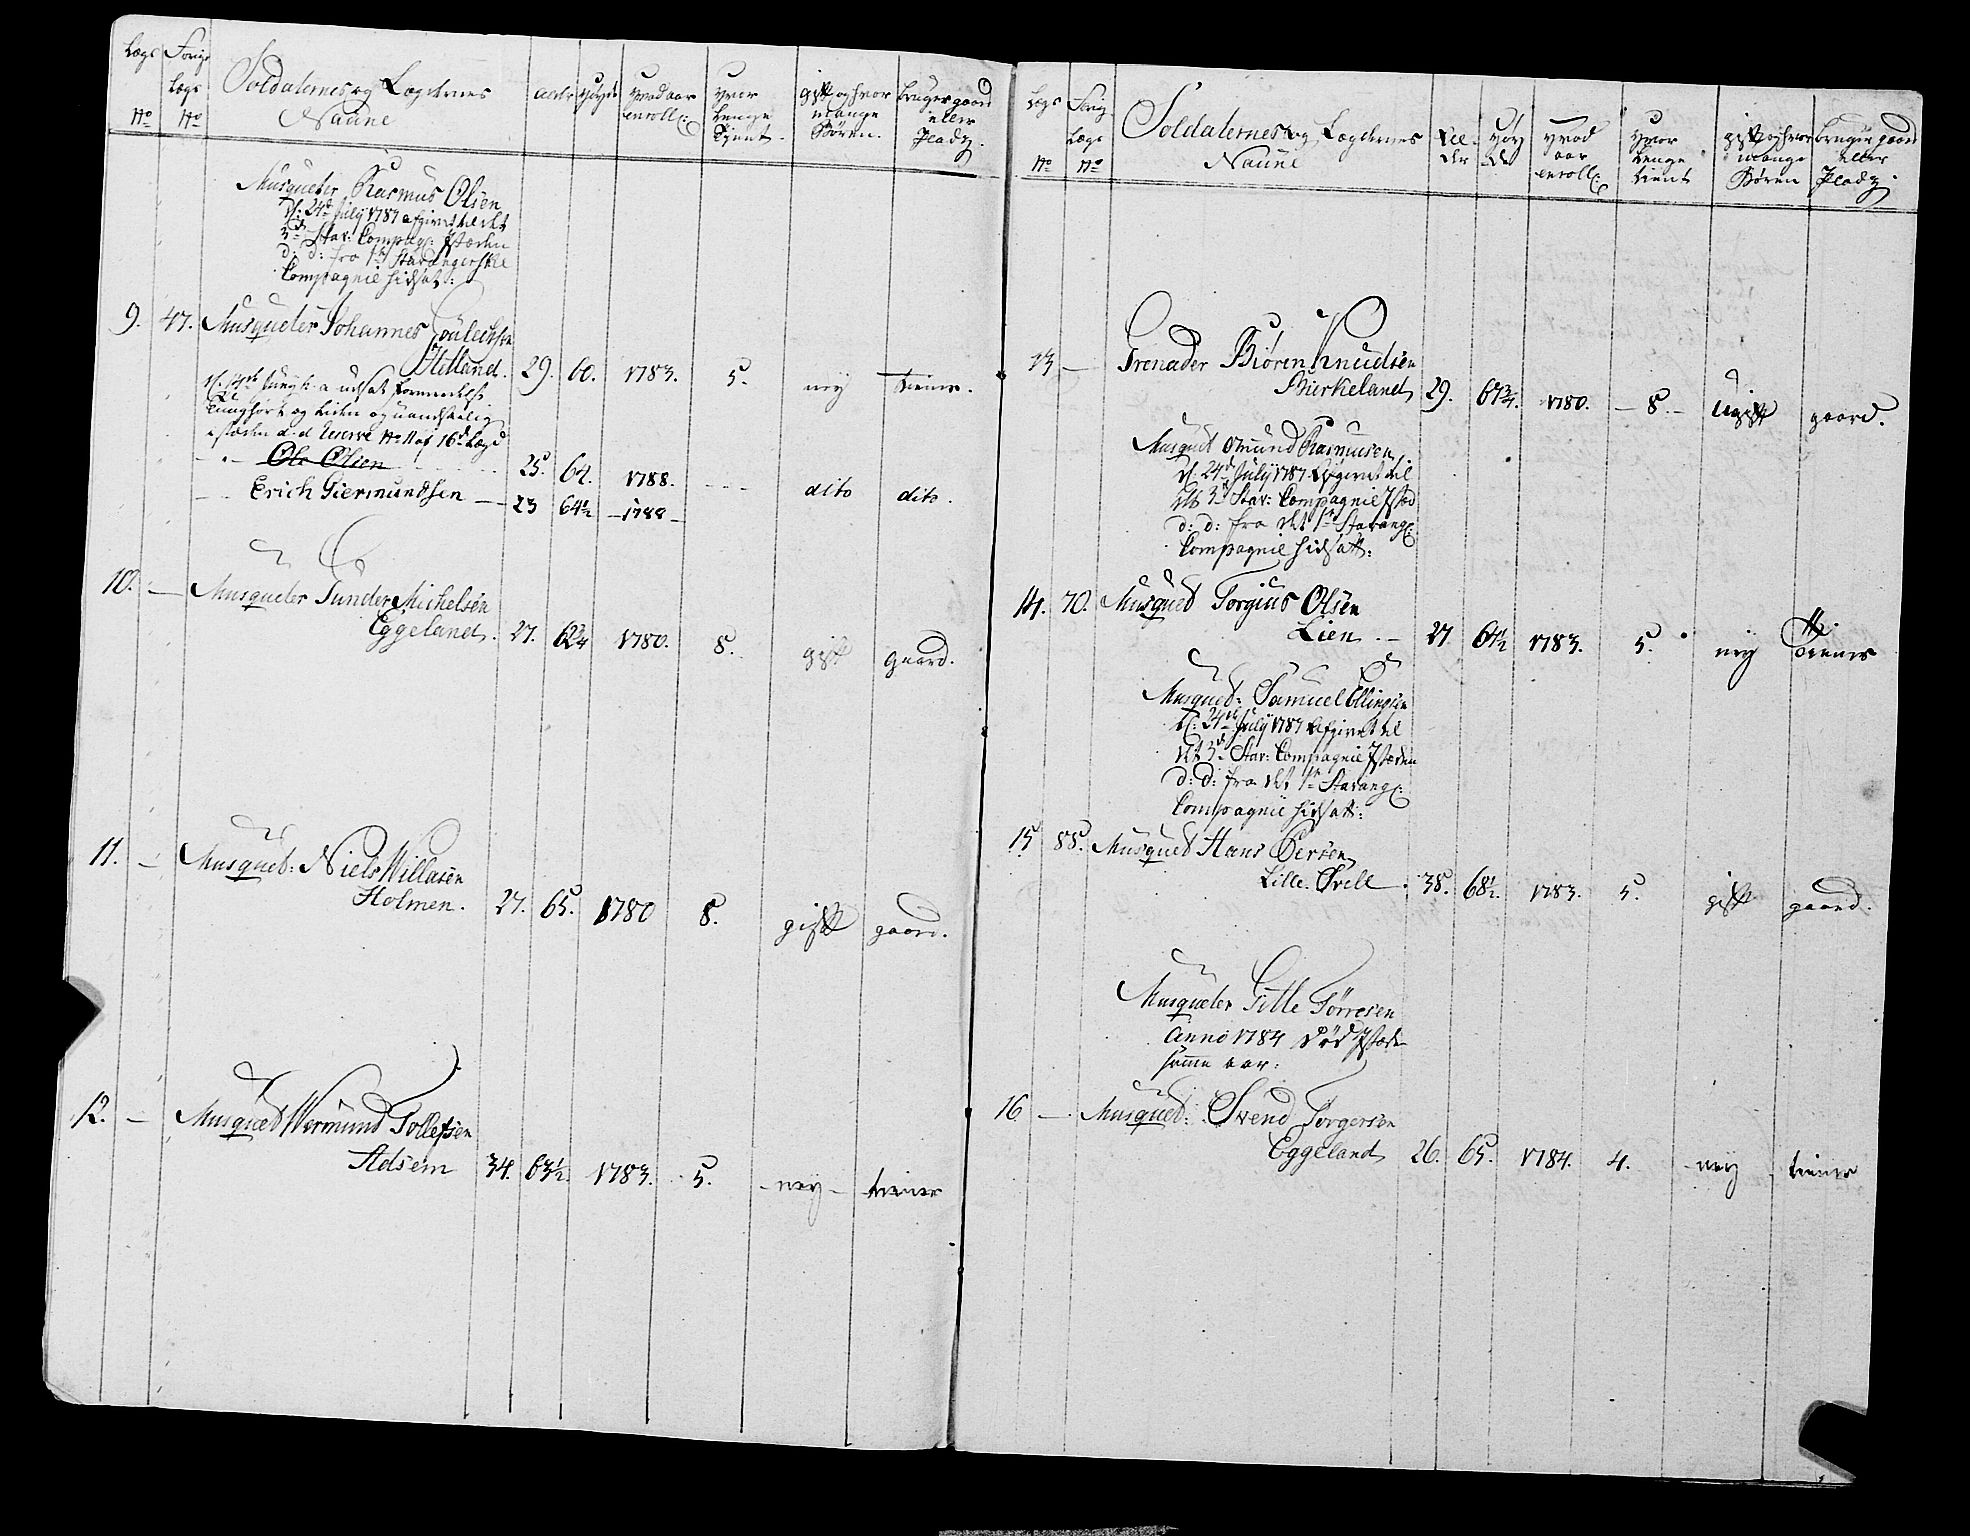 Lægs No
Forige Lægs No
Soldaternes og Lægdernes Naune
alder
Høyde
Hvad aar enroll:
Hvor Lenge tient
gift og hvor mange Børen.
bruger gaard eller Pladz.
Musqueter Rasmus Olsen
d: 24de July 1787 afgivet til det
3de Stav: Compag: I stæden
d: d: fra 1te Stavangerske
Compagnie hidsat:
9. 47. Musqueter Johannes
Helland. 29. 60. 1783. 5. ney tiener.
Tunghørt og Liden og uanseelig
i stæden d: d Reserve No 11 af 16de Lægd
Ole Olsen 25. 64. 1788.
Erich Giermundsen 23 64½ 1788 dito dito.
10. — Musqueter Gunder Michelsen
Eggeland. 27. 62¾ 1780. 8. gift gaard.
11. — Musquet: Niels Willasen
Holmen. 27. 65. 1780 8. gift gaard.
12. — Musquet Wermund Tollefsen
Adsem 34. 63½. 1783. 5. ney tiener
Lægs No
Forig Lægs No
Soldaternes og Lægdernes Naune
Alder
Høyde
Hvad aar enroll:
Hvor Lenge tient
gift og hvor mange Børen
bruger gaard eller Pladz.
13 — Grenader Biøren Knudsen
Birkeland 29. 67¾. 1780. 8. Ugift gaard.
Musquet Omund Rasmusen
d: 24de July 1787 Afgivet til
det 3de Stav: Compagnie I stæd
d: d: fra det 1te Stavang:
Compagnie hidsatt:
14. 70. Musquet Torgius Olsen
Lien 27 64½ 1783. 5. ney tienes
Musquet: Samuel Ellingsen
d: 24de July 1787 Afgivet til
det 3de Stav: Compagnie I stæden
d: d: fra det 1te Stavang:
Compagnie hidsatt:
15 88. Musquet Hans Persen
Lille 38. 68½. 1783. 5. gift gaard.
Musqueter Gitle Tørresen
Anno 1784 død I stæden
samme aar:
16 — Musquet: Svend Torgersen
Eggeland 26. 65. 1784. 4. ney tiener